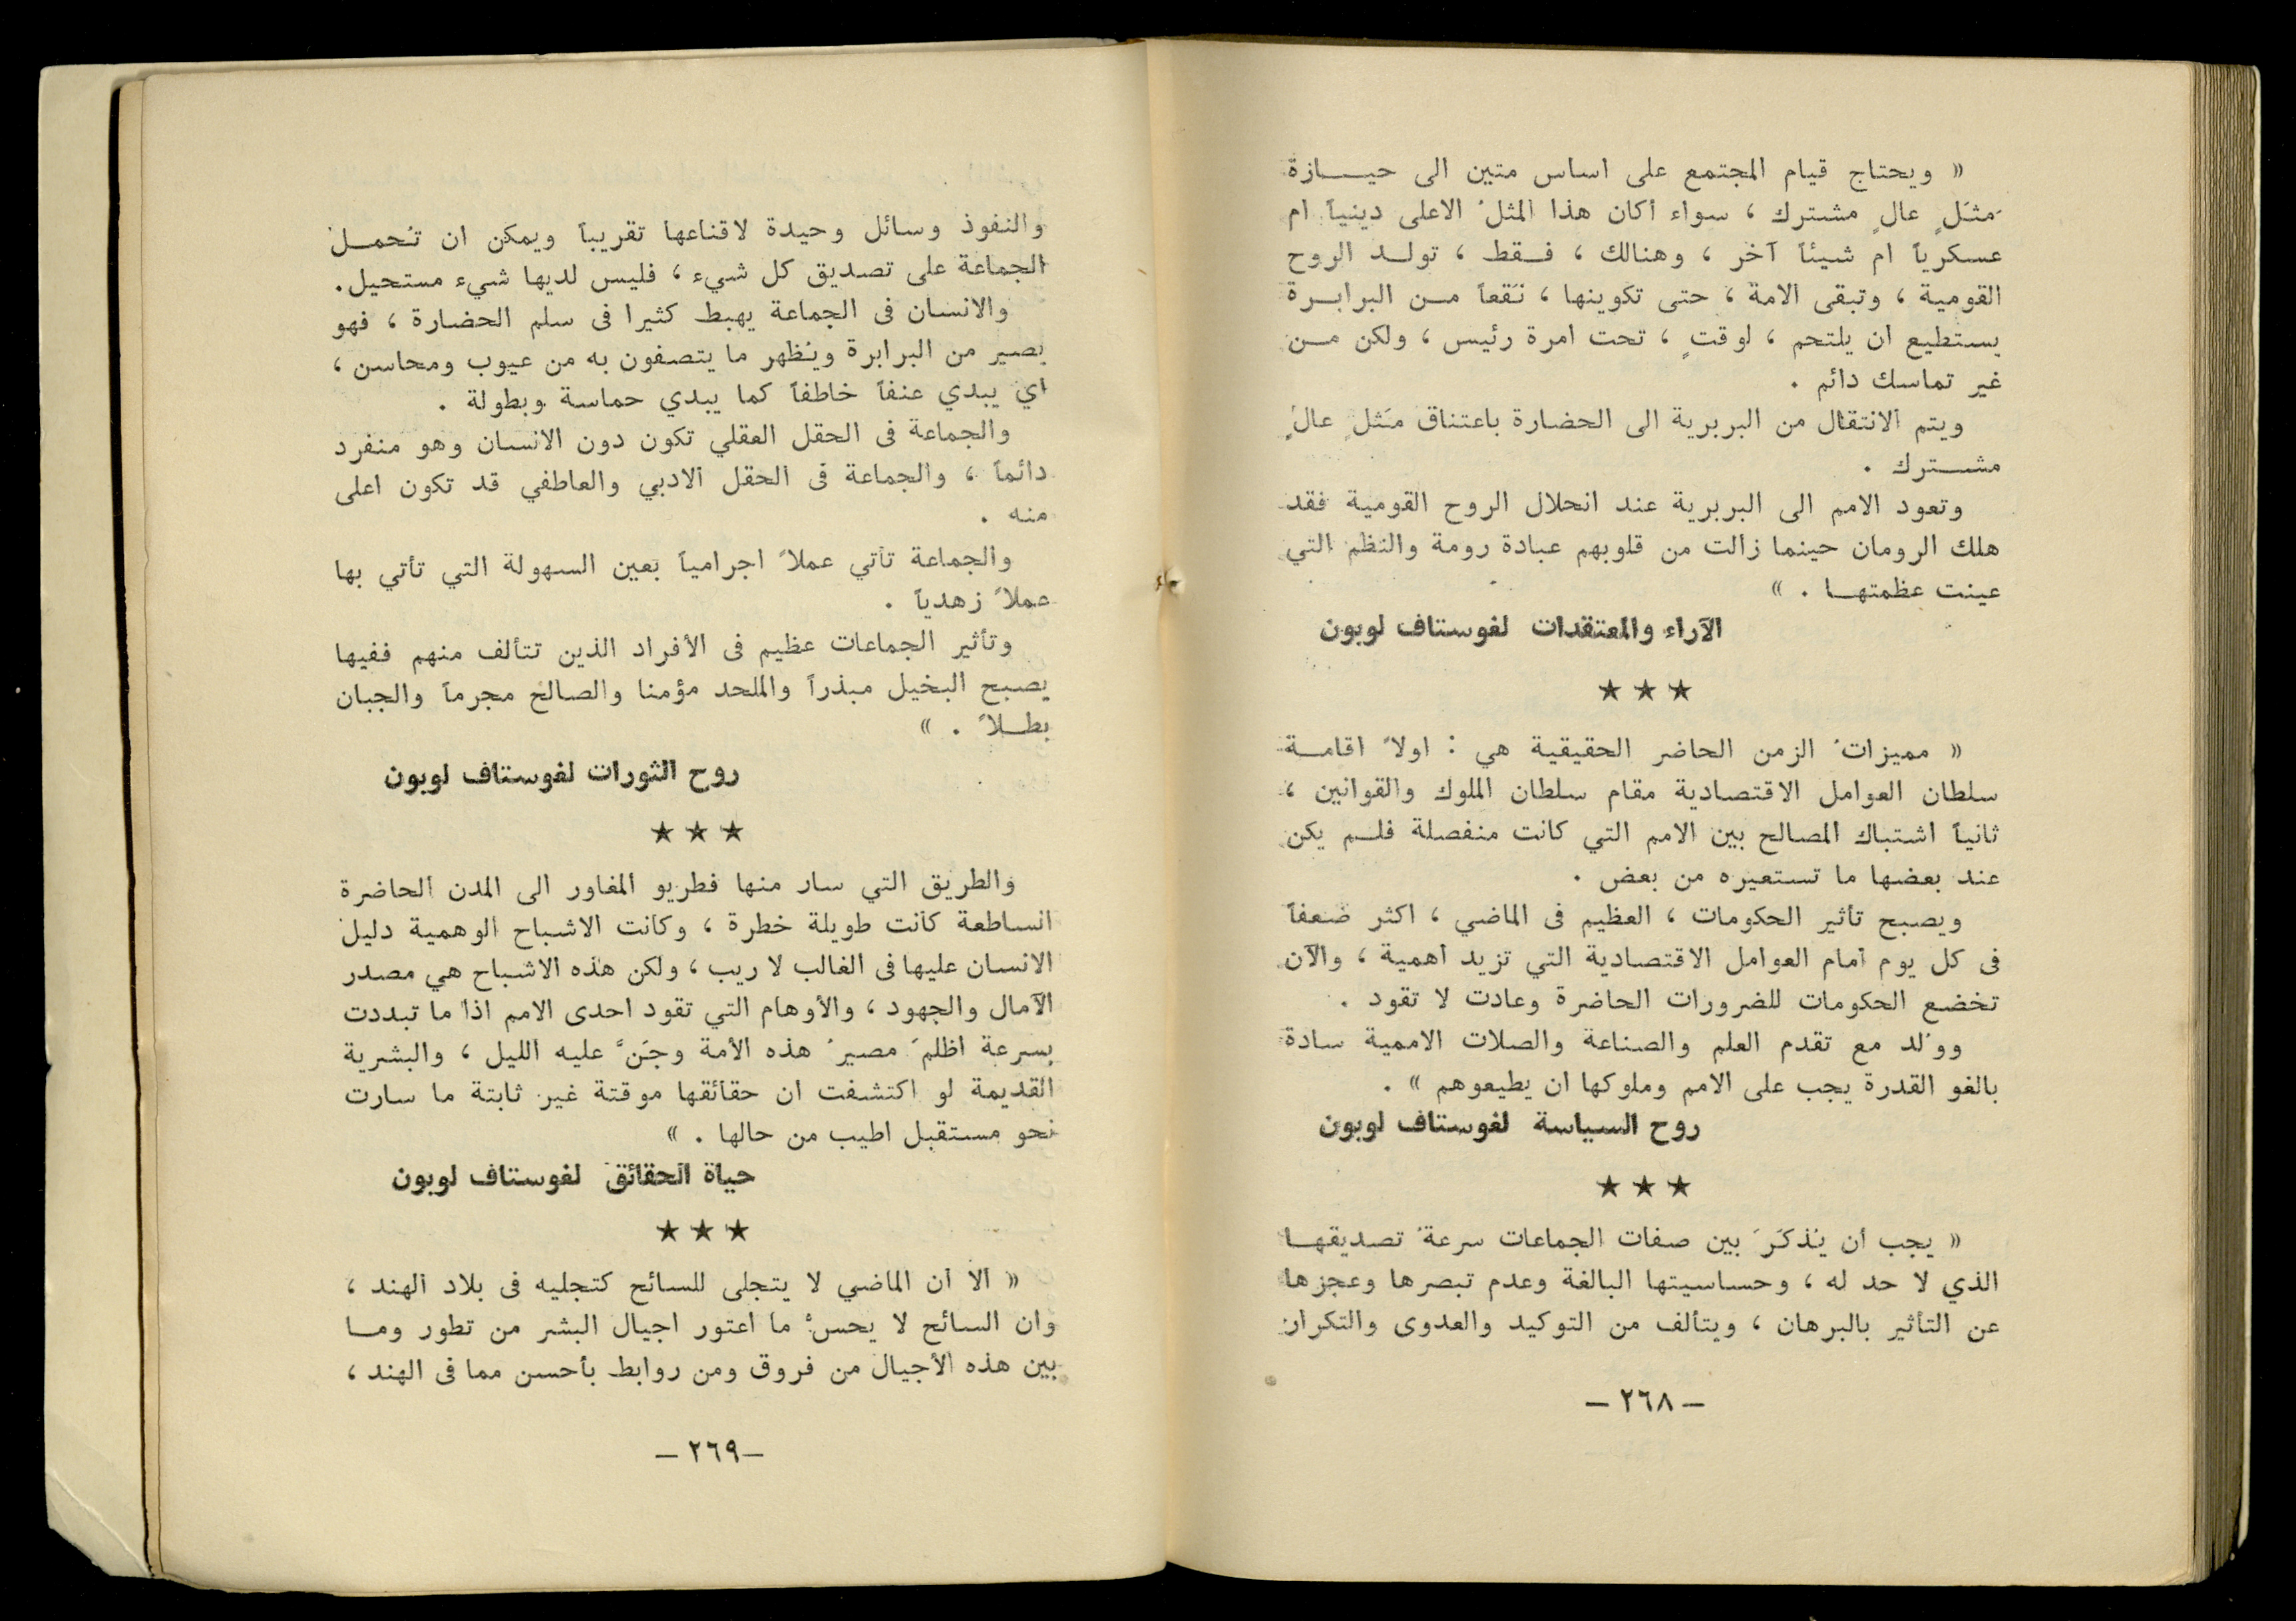 « ويحتاج قيام المجتمع على اساس متين الى حيـــازة
مَثَلٍ عالٍ مشترك ، سواء أكان هذا المثلُ الاعلى دينياً ام
عسكرياً ام شيئاً آخر ، وهنالك ، فـقط ، تولـد الروح
القومية ، وتبقى الامة ، حتى تكوينها ، نَقعاً مـن البرابـرة
يستطيع ان يلتحم ، لوقتٍ ، تحت امرة رئيس ، ولكن مـن
غير تماسك دائم .
ويتم الانتقال من البربرية الى الحضارة باعتناق مَثلٍ عالٍ
مشـترك .
وتعود الامم الى البربرية عند انحلال الروح القومية فقد
هلك الرومان حينما زالت من قلوبهم عبادة رومة والنظم التي
عينت عظمتهـا . »
الآراء والمعتقدات لغوستاف لوبون
★ ★ ★
« مميزاتُ الزمن الحاضر الحقيقية هي : اولاً اقامـة
سلطان العوامل الاقتصادية مقام سلطان الملوك والقوانين ،
ثانياً اشتباك المصالح بين الامم التي كانت منفصلة فلـم يكن
عند بعضها ما تستعيره من بعض .
ويصبح تأثير الحكومات ، العظيم فى الماضي ، اكثر ضعفاً
فى كل يوم أمام العوامل الاقتصادية التي تزيد أهمية ، والآن
تخضع الحكومات للضرورات الحاضرة وعادت لا تقود .
ووُلد مع تقدم العلم والصناعة والصلات الاممية سادة
بالغو القدرة يجب على الامم وملوكها ان يطيعوهم » .
روح السياسة لغوستاف لوبون
★ ★ ★
« يجب أن يُذكَرَ بين صفات الجماعات سرعةُ تصديقهـا
الذي لا حد له ، وحساسيتها البالغة وعدم تبصرها وعجزها
عن التأثير بالبرهان ، ويتألف من التوكيد والعدوى والتكرار
– ٢٦٨ –
والنفوذ وسائل وحيدة لاقناعها تقريباً ويمكن ان تُحمـل
الجماعة على تصديق كل شيء ، فليس لديها شيء مستحيل.
والانسان فى الجماعة يهبط كثيرا فى سلم الحضارة ، فهو
يصير من البرابرة ويُظهر ما يتصفون به من عيوب ومحاسن ،
أي يبدي عنفاً خاطفاً كما يبدي حماسة وبطولة .
والجماعة فى الحقل العقلي تكون دون الانسان وهو منفرد
دائماً ، والجماعة فى الحقل الادبي والعاطفي قد تكون اعلى
منه .
والجماعة تأتي عملاً اجرامياً بعين السهولة التي تأتي بها
عملاً زهدياً .
وتأثير الجماعات عظيم فى الأفراد الذين تتألف منهم ففيها
يصبح البخيل مبذراً والملحد مؤمنا والصالح مجرماً والجبان
بطـلاً . »
روح الثورات لغوستاف لوبون
★ ★ ★
والطريق التي سار منها فطريو المغاور الى المدن الحاضرة
الساطعة كانت طويلة خطرة ، وكانت الاشباح الوهمية دليل
الانسان عليها فى الغالب لا ريب ، ولكن هذه الاشباح هي مصدر
الآمال والجهود ، والأوهام التي تقود احدى الامم اذا ما تبددت
بسرعة اظلمَ مصيرُ هذه الأمة وجَنَّ عليه الليل ، والبشرية
القديمة لو اكتشفت ان حقائقها موقتة غير ثابتة ما سارت
نحو مستقبل اطيب من حالها . »
حياة الحقائق لغوستاف لوبون
★ ★ ★
« ألا أن الماضي لا يتجلى للسائح كتجليه فى بلاد الهند ،
وان السائح لا يحسُّ ما اعتور اجيال البشر من تطور ومـا
بين هذه الأجيال من فروق ومن روابط بأحسن مما فى الهند ،
–٢٦٩ –